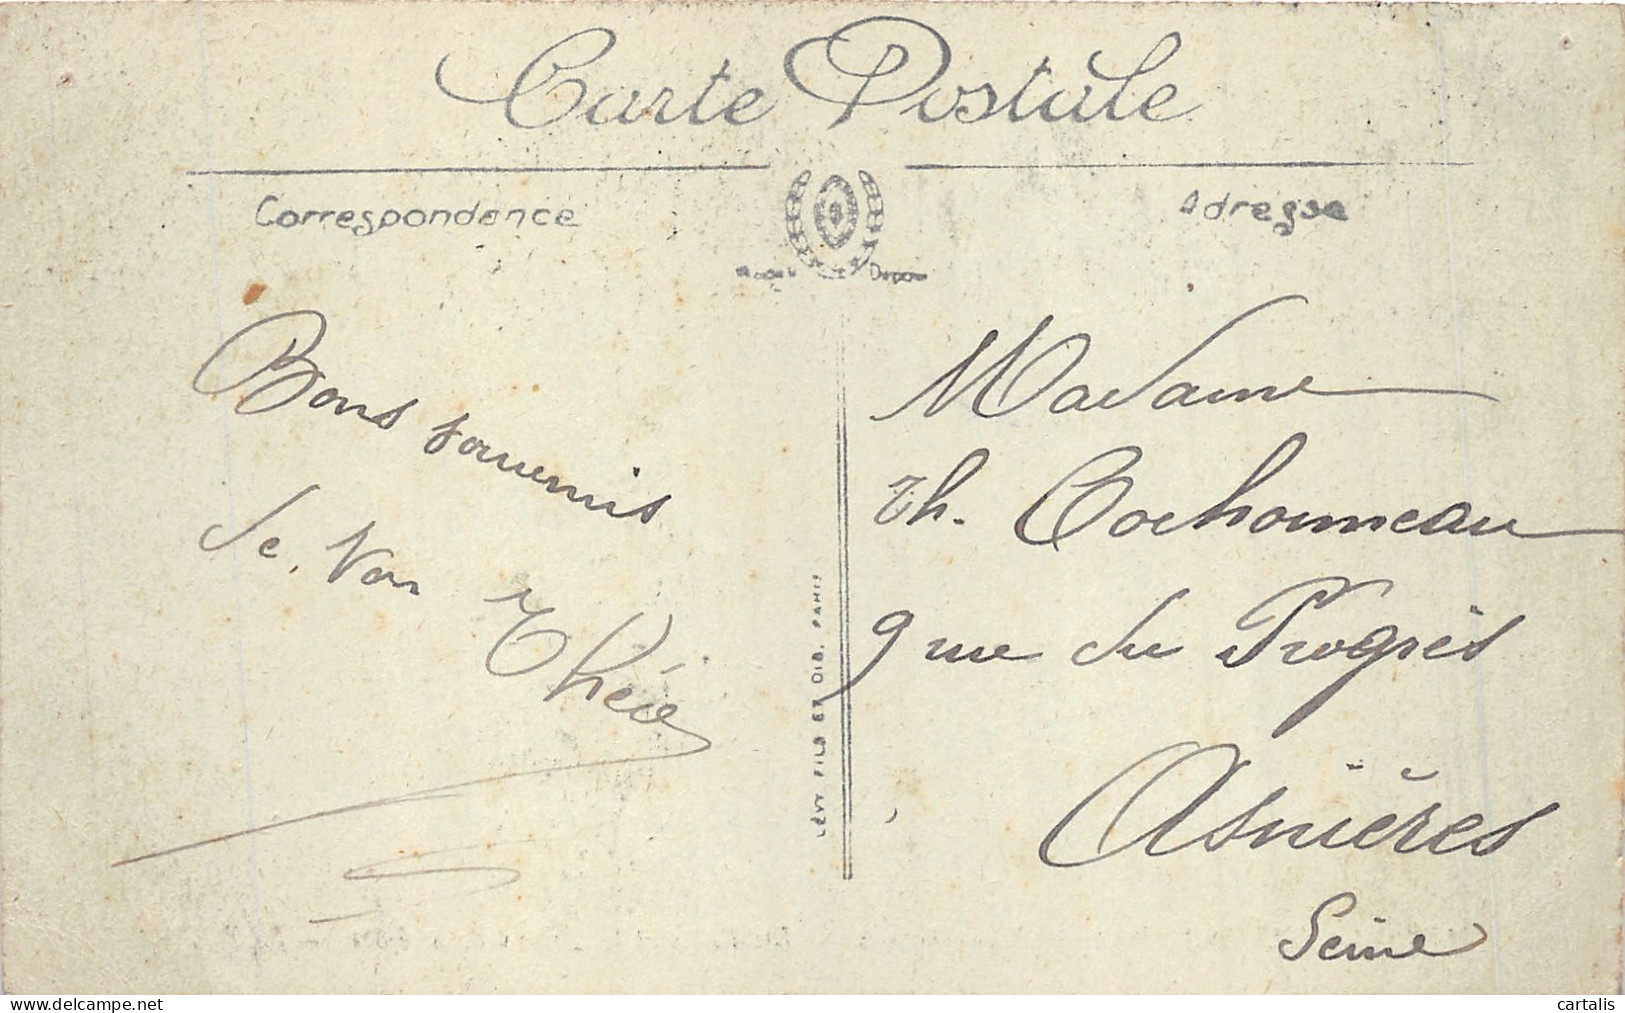 Carte Postale
Correspondence
Adresse
Bons souvenirs
de ton Théo
LÉVY FILS ET CIE. PARIS
Madame
Th. Cochonneau
9 rue du Progrès
Asnières
Seine
delcampe.net
cartalis